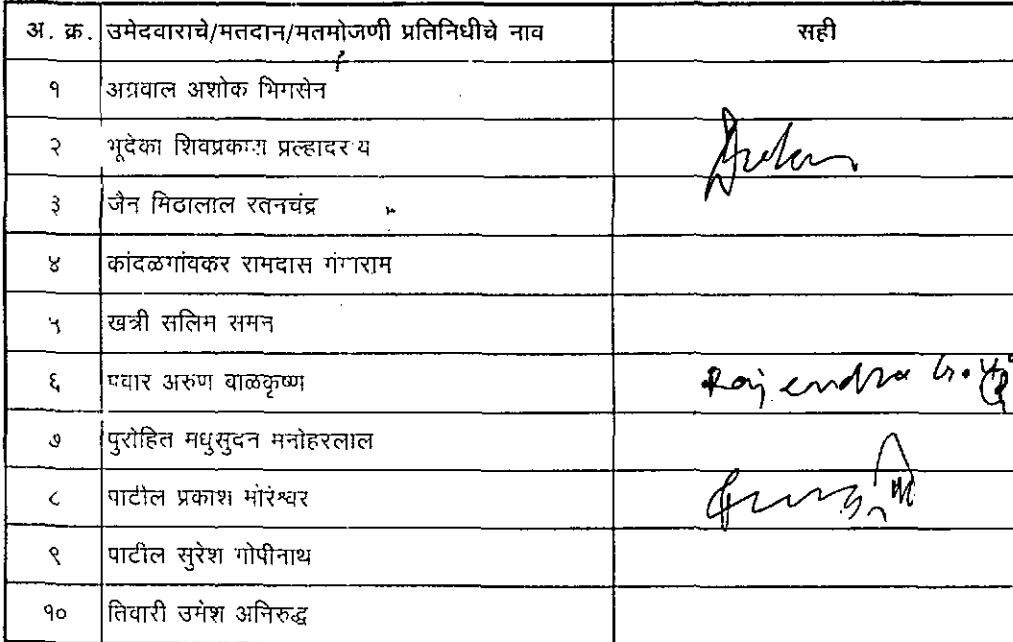 अ. क्र. उमेदवाराचे/मतदान/मतमोजणी प्रतिनिधीचे नाव सही
१ अग्रवाल अशोक भिमसेन
२ भूदेका शिवप्रकाश प्रल्हादराय
३ जैन मिठालाल रतनचंद्र
४ कांदळगांवकर रामदास गंगाराम
५ खत्री सलिम समन
६ पवार अरुण बाळकृष्ण Rajendra
७ पुरोहित मधुसुदन मनोहरलाल
८ पाटील प्रकाश मोरेश्वर
९ पाटील सुरेश गोपीनाथ
१० तिवारी उमेश अनिरुद्ध